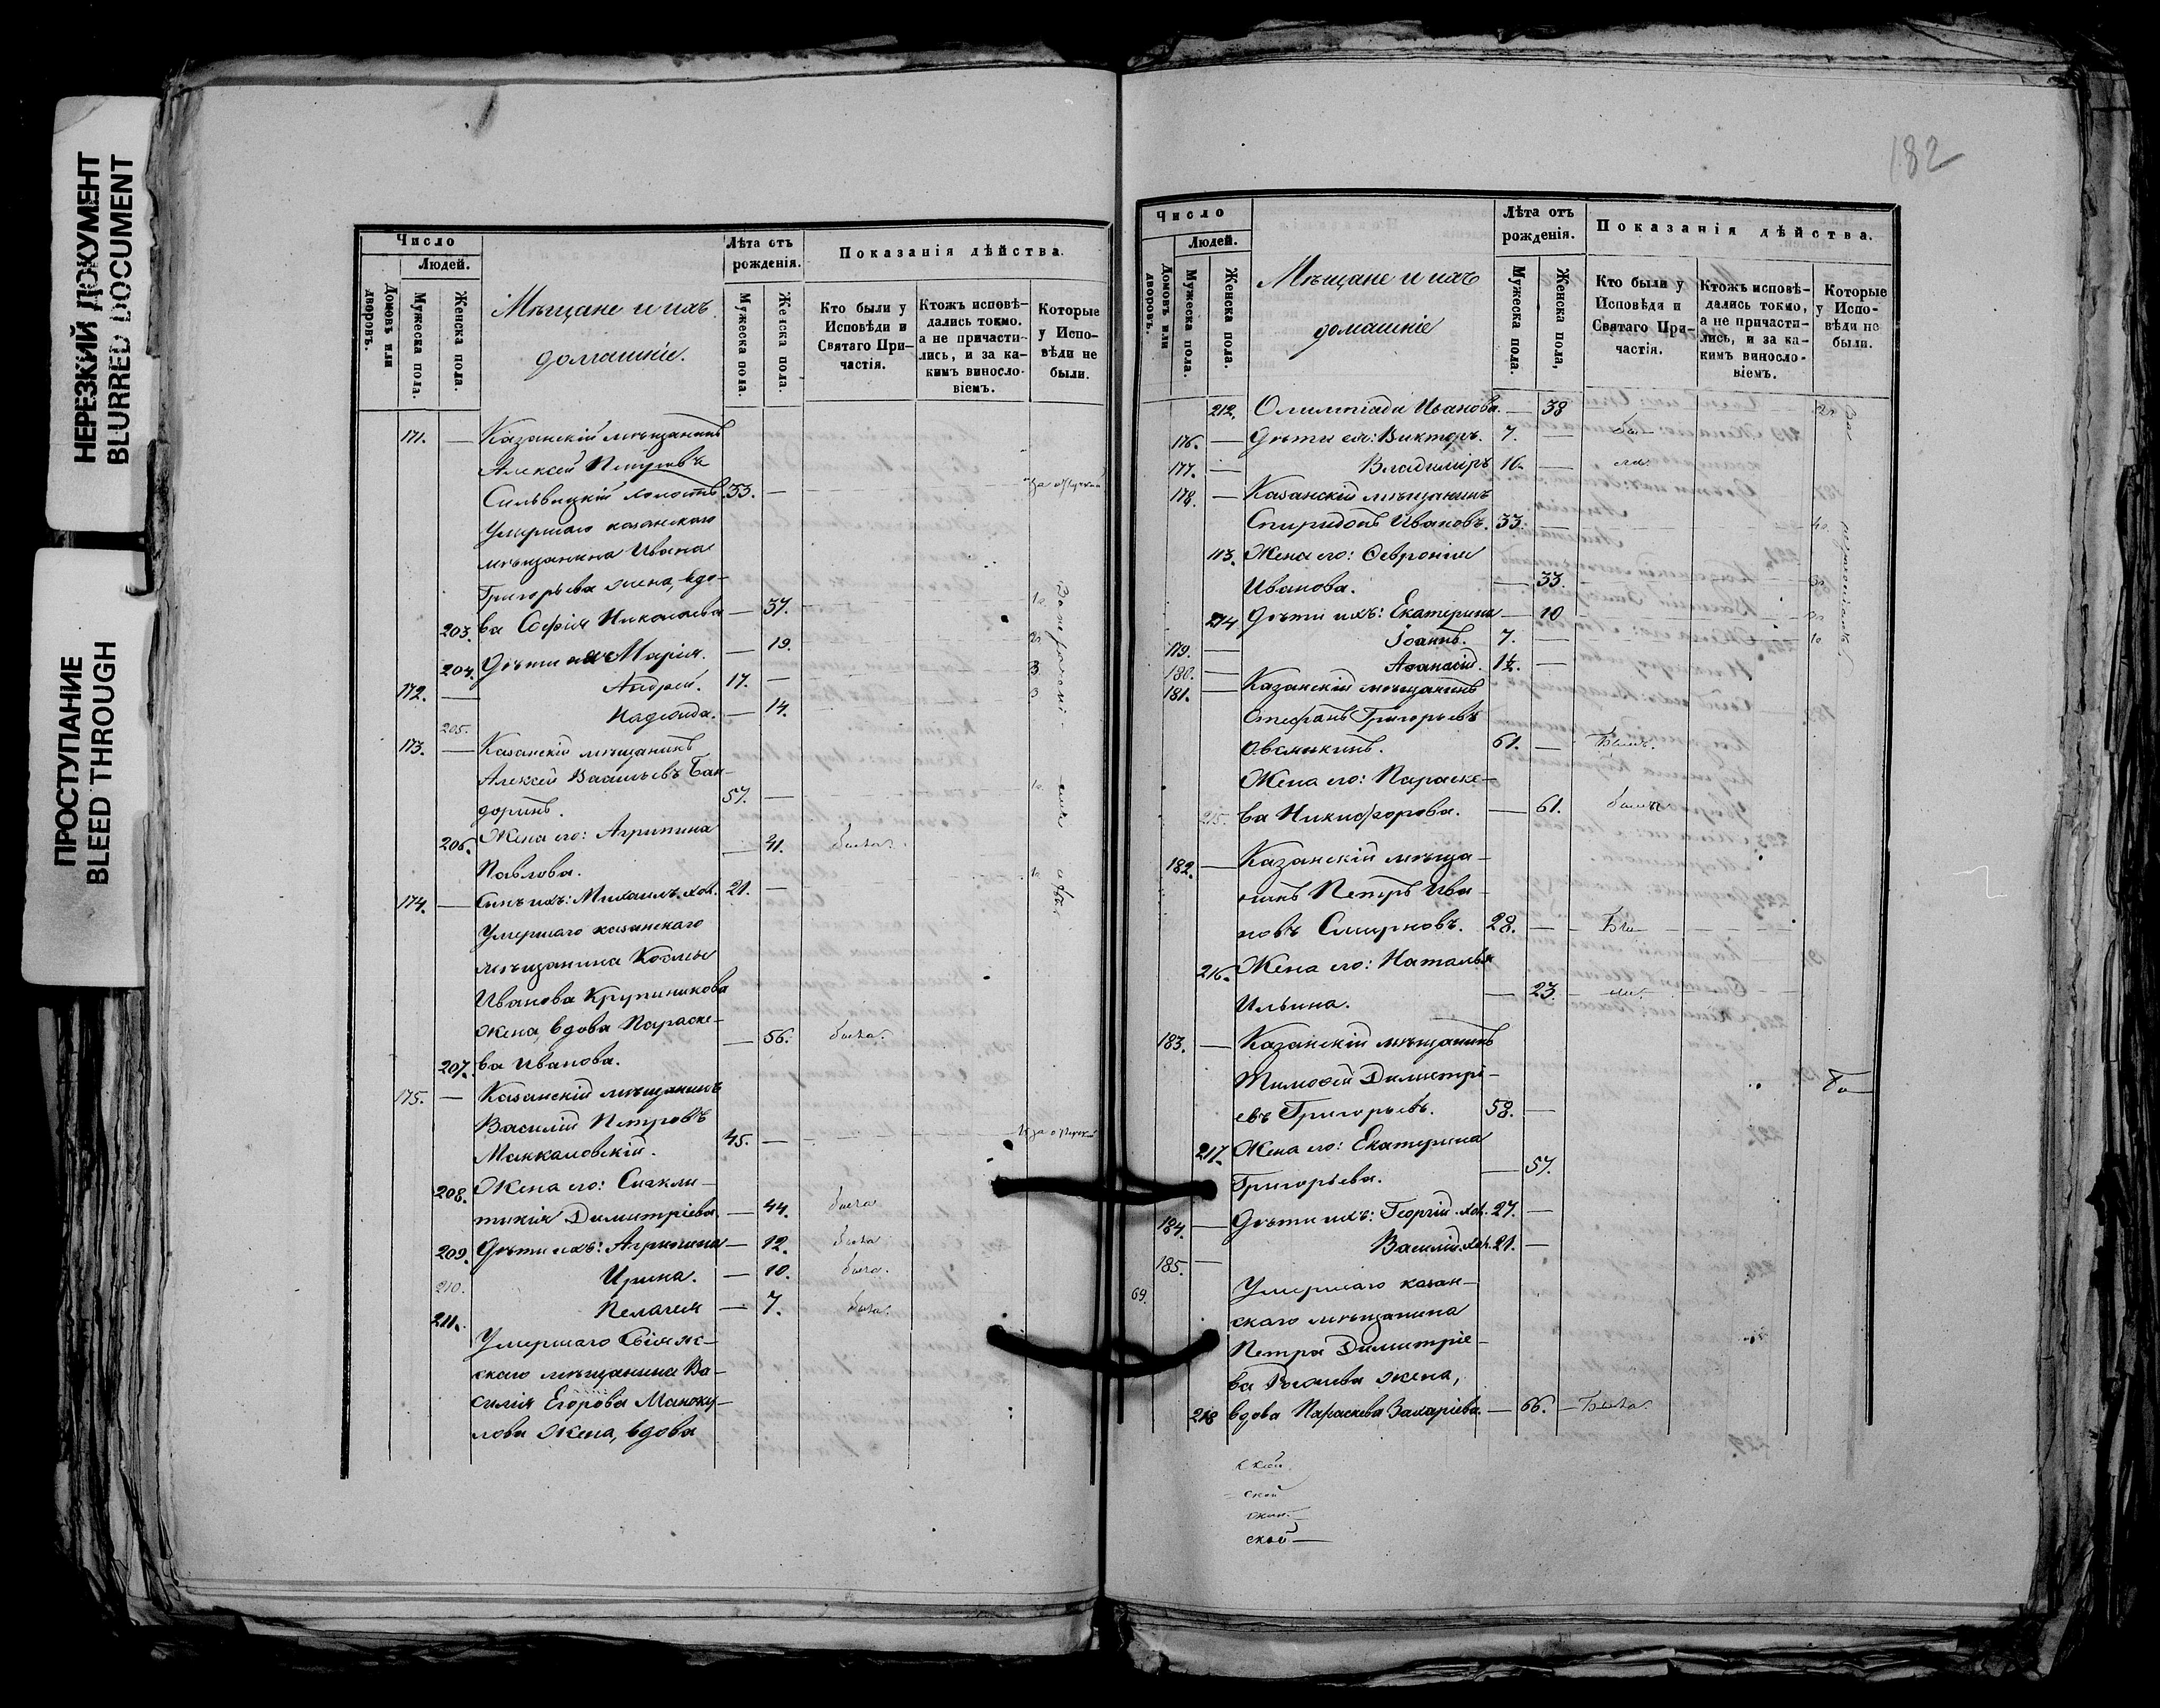 НЕРЕЗКИЙ ДОКУМЕНТ
BLURRED DOCUMENT
ПРОСТУПАНИЕ
BLEED THROUGH
Число
Людей.
Домовъ или дворовъ.
Мужеска пола.
Женска пола.
Мѣщане и ихъ
домашніе.
Лѣта отъ рожденія.
Мужеска пола.
Женска пола.
Показанія дѣйства.
Кто были у Исповѣди и Святаго При-частія.
Ктожъ исповѣ-дались токмо. а не причасти-лись, и за ка-кимъ виносло-віемъ.
Которые у Испо-вѣди не были.
171. — Казанскій мѣщанинъ
Алексей Петровъ
Сильвицкій холостъ 33. —
Умершаго казанскаго
мѣщанина Ивана
Григорьева жена, вдо-
203. ва Софія Николаева — 37.
204. Дѣти ихъ Марія. — 19.
172. — Андрей. 17. —
205. Надежда. — 14.
173. — Казанскій мѣщанинъ
Алексей Васильевъ Бан-
доринъ. 57. —
206. Жена его: Агрипина
Павлова. — 41. была.
174. — Сынъ ихъ: Михаилъ хол. 21. —
Умершаго казанскаго
мѣщанина Козмы
Иванова Крупинникова
жена, вдова Параске-
207. ва Иванова. — 56. была.
175. — Казанскій мѣщанинъ
Василій Петровъ
45. —
208. Жена его: Синкли-
тикія Димитріева. — 44. была
209. Дѣти ихъ: Агрипина — 12. была
210. Ирина. — 10. была.
211. Пелагея — 7. была.
Умершаго Свіяж-
скаго мѣщанина Ва-
силія Егорова
лова жена, вдова
182
Число
Людей.
Домовъ или дворовъ.
Мужеска пола.
Женска пола.
Мѣщане и ихъ
домашніе
Лѣта отъ рожденія.
Мужеска пола.
Женска пола,
Показанія дѣйства.
Кто были у Исповѣди и Святаго При-частія.
Ктожъ исповѣ-дались токмо, а не причасти-лись, и за ка-кимъ виносло-віемъ.
Которые у Испо-вѣди не были.
212. Олимпіада Иванова. — 38
176. — Дѣти ея: Викторъ. 7. —
177. — Владиміръ 16. —
178. — Казанскій мѣщанинъ
Спиридонъ Ивановъ. 33. —
113. Жена его: Февронія
Иванова. — 33.
214 Дѣти ихъ: Екатерина — 10
179. — Іоаннъ. 7. —
180. — Афанасій. 1½. —
181. — Казанскій мѣщанинъ
Стефанъ Григорьевъ
Овсянкинъ. 61. — Былъ.
Жена его: Параске-
215. ва Никифорова. — 61. была
182. — Казанскій мѣща-
нинъ Петръ Ива-
новъ Смирновъ. 28. —
216. Жена его: Наталья
Ильина. — 23.
183. — Казанскій мѣщанинъ
Тимофей Димитрі-
евъ Григорьевъ. 58. —
217. Жена его: Екатерина
Григорьева. — 57.
184. — Дѣти ихъ: Георгій хол. 27. —
185. — Василій хол. 21. —
69. Умершаго казан-
скаго мѣщанина
Петра Димитріе-
ва жена,
218 вдова Параскева Захаріева. — 66. — Была.
ской
ской —